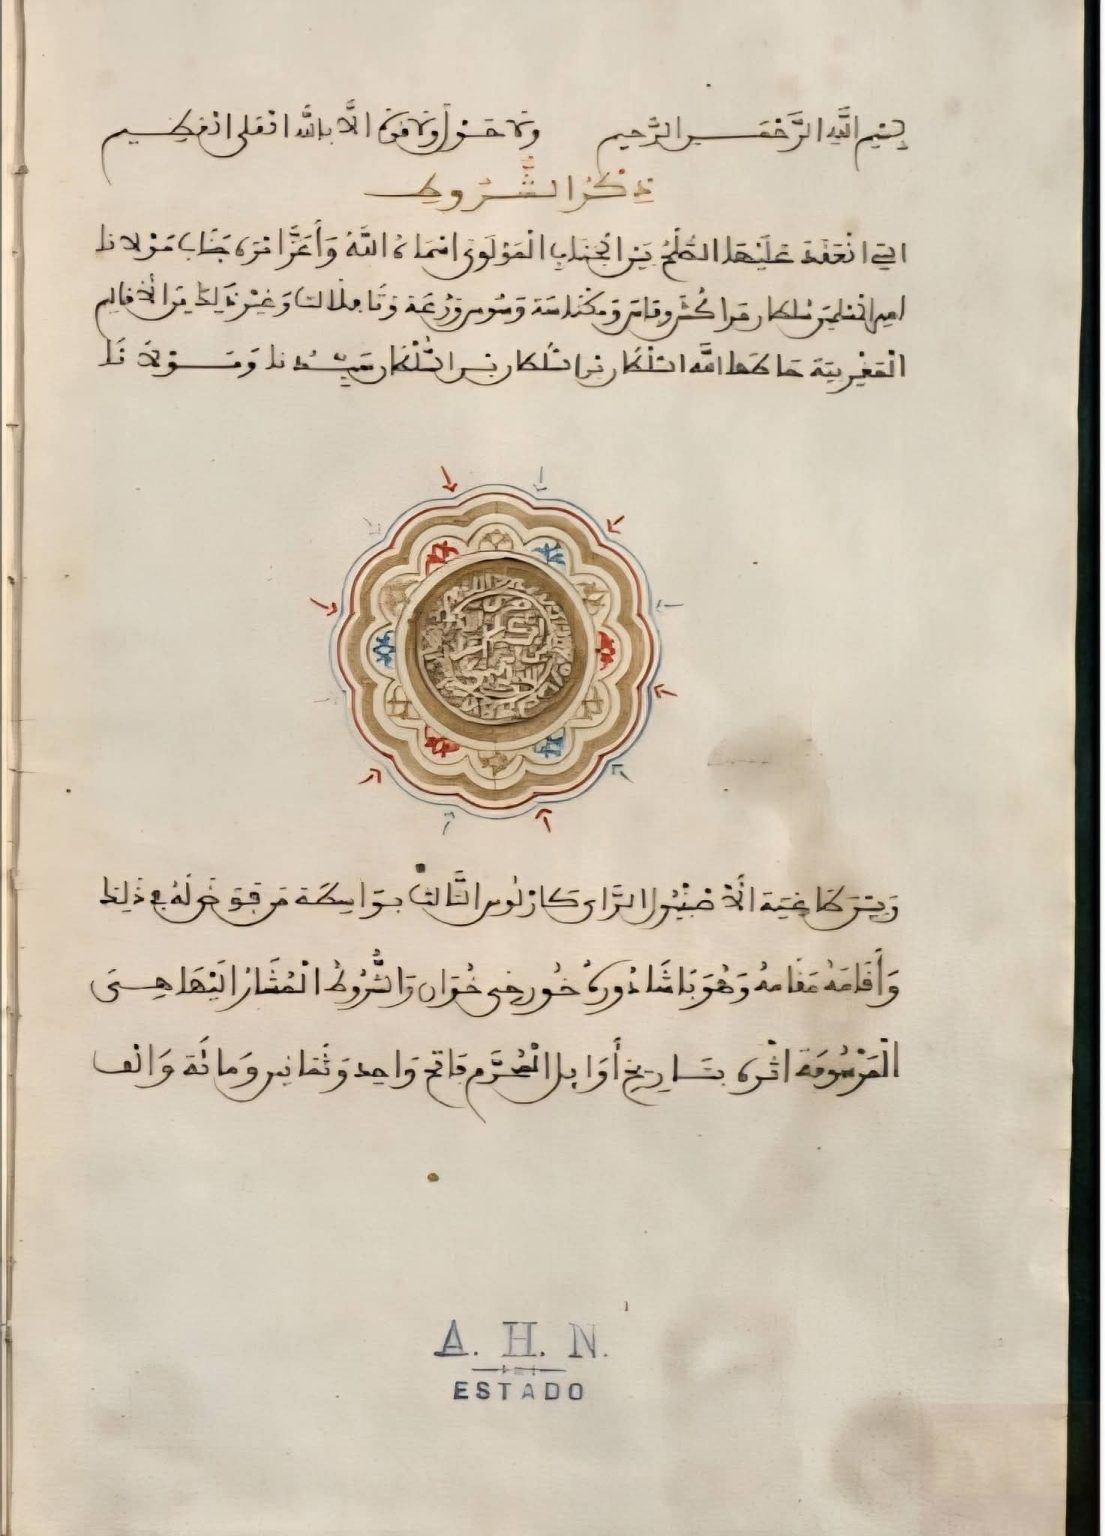 بسم الله الرحمن الرحيم ولا حول ولا قوة الا بالله العلي العظيم
ذكر الشروط
التي انعقد عليها الصلح بين الجناب المولوي اسماه الله وأعز امره جناب مولانا
امير المسلمين سلطان مراكش وفاس ومكناسة وسوس ودرعة وتافيلالت وغير ذلك من الأقاليم
المغربية حاطها الله السلطان بن السلطان بن السلطان سيدنا ومولانا
وبين طاغية الأصبنيول الراي كارلوس الثالث بواسطة من فوض له في ذلك
وأقامه مقامه وهو باشادوره خورخي خوان والشروط المشار اليها هي
المرسومة اثره بتاريخ أوايل المحرم فاتح واحد وثمانين ومائة والف
A. H. N.
ESTADO